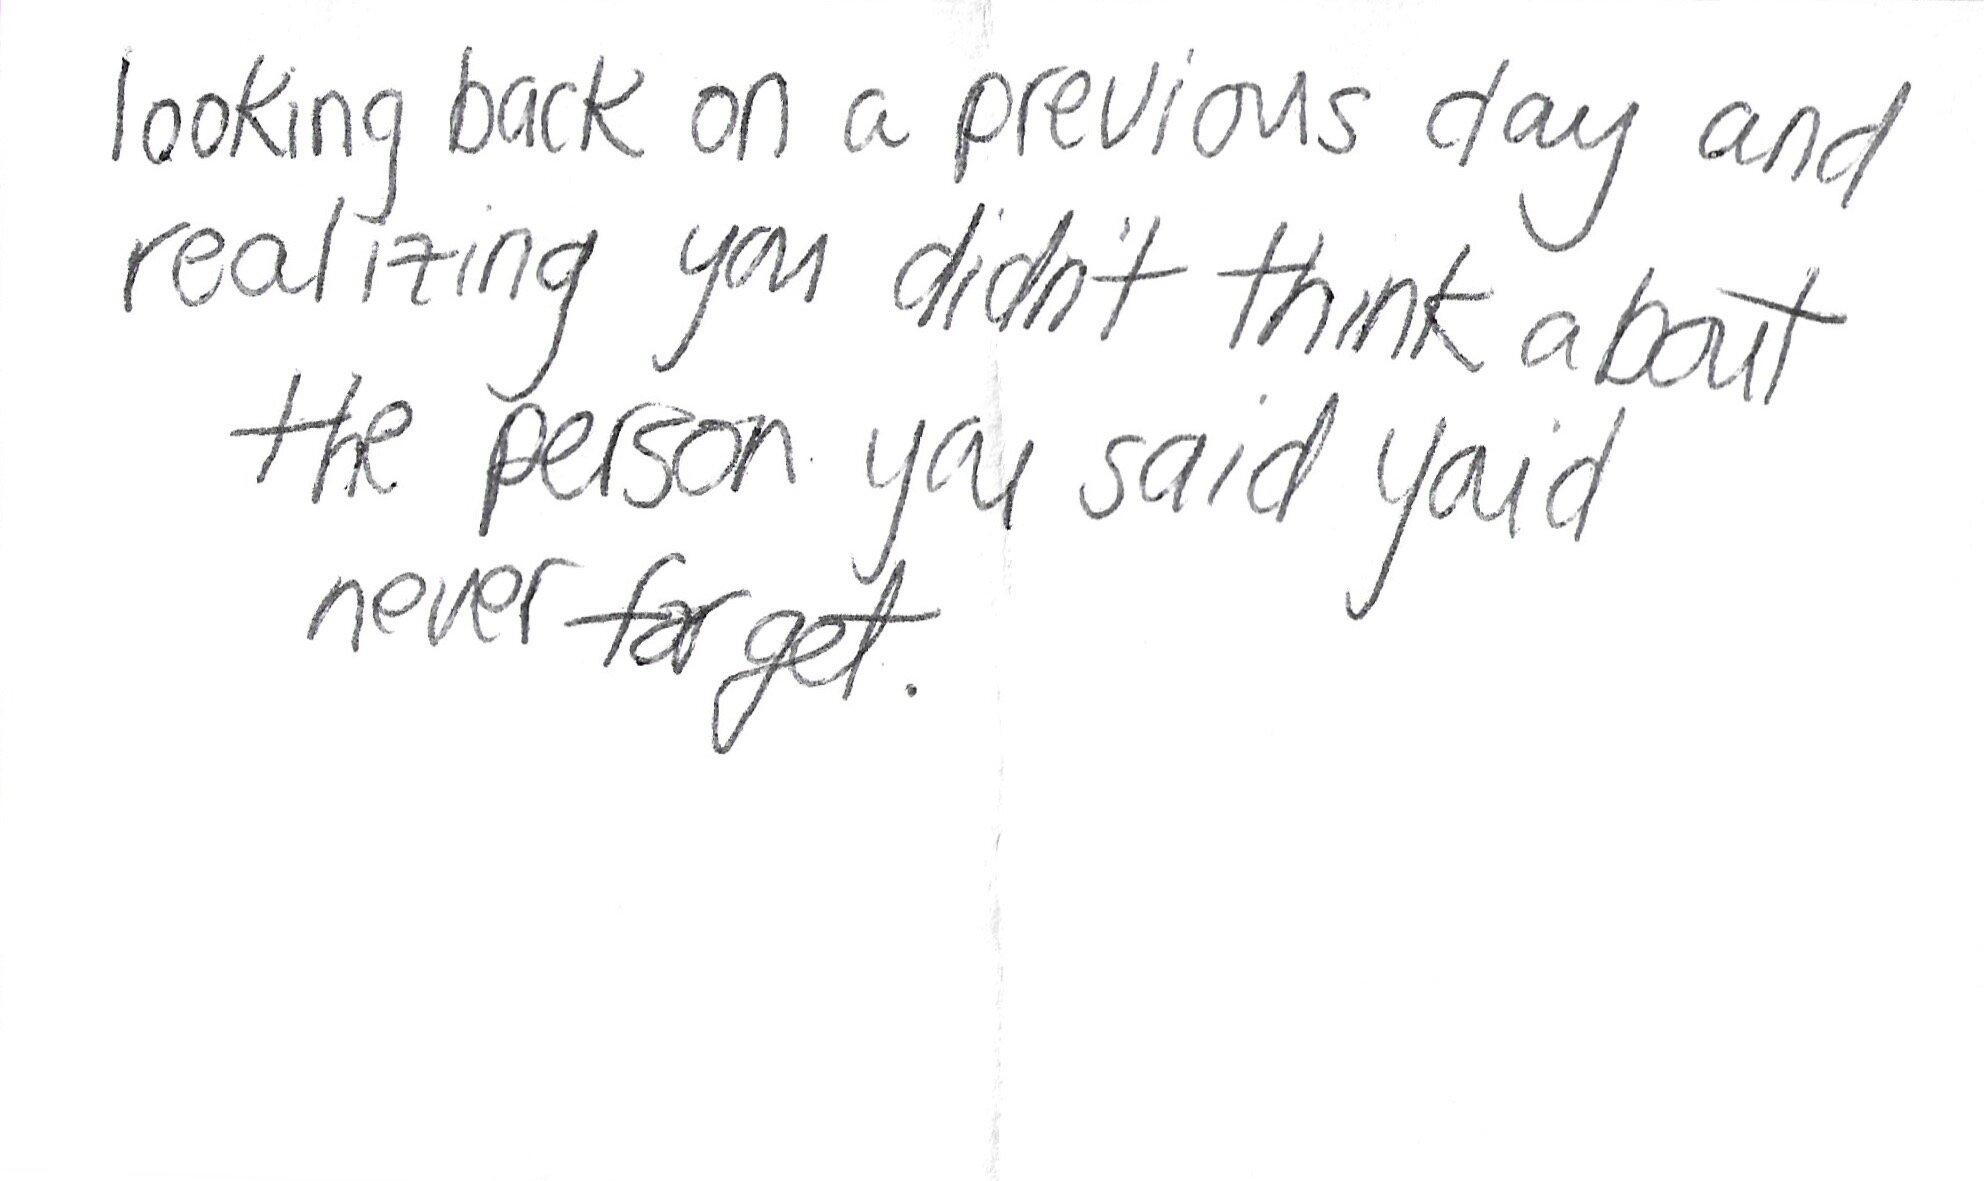 looking back on a previous day and
realizing you didn't think about
the person you said you'd
never forget.